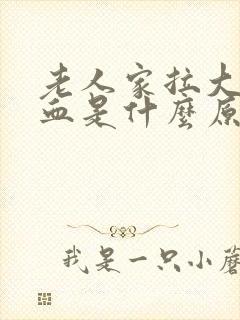 老人家拉大
血是什麼原
我是一只小蘑